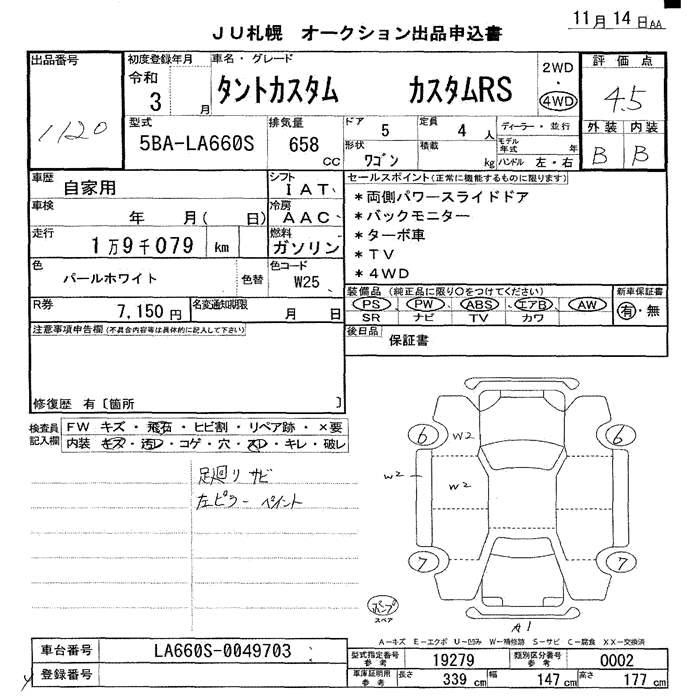 11月 14日AA
JU札幌 オークション出品申込書
出品番号
1120
初度登録年月
令和
3 月
車名・グレード
タントカスタム カスタムRS
2WD
・
4WD
評価点
4.5
外装 内装
B B
型式
5BA-LA660S
排気量
658
CC
ドア
5
定員
4 人
形状
ワゴン
積載
kg
ディーラー・並行
モデル年式 年
ハンドル 左・右
車歴
自家用
シフト
IAT
車検
年 月( 日)
冷房
AAC
走行
1万9千079 km
燃料
ガソリン
色
パールホワイト
色替
色コード
W25
R券
7,150円
名変通知期限
月 日
セールスポイント(正常に機能するものに限ります)
*両側パワースライドドア
*バックモニター
*ターボ車
*TV
*4WD
装備品 (純正品に限り○をつけてください)
PS PW ABS エアB AW
SR ナビ TV カワ
新車保証書
有・無
後日品
保証書
注意事項申告欄(不具合内容等は具体的に記入して下さい)
修復歴 有〔箇所 〕
検査員記入欄
FW キズ・飛石・ヒビ割・リペア跡・×要
内装 キズ・汚レ・コゲ・穴・スレ・キレ・破レ
足廻りサビ
左ピラーペイント
6 W2 6
W2 W2
7 7
スペア
A1
A－キズ E－エクボ U－凹み W－補修跡 S－サビ C－腐食 XX－交換済
車台番号
LA660S-0049703
登録番号
型式指定番号
参考
19279
類別区分番号
参考
0002
車庫証明用
参考
長さ
339 cm
幅
147 cm
高さ
177 cm